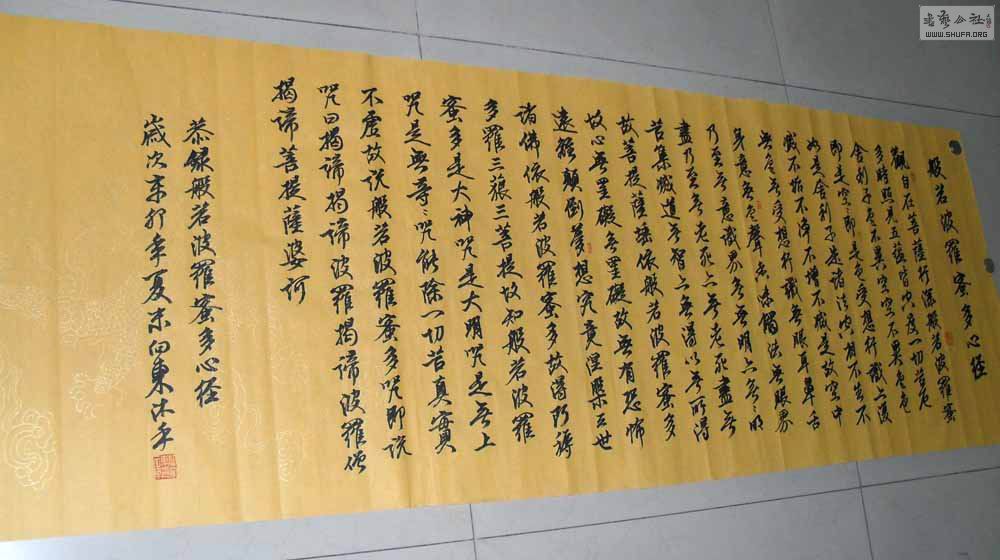 般若波羅蜜多心經
觀自在菩薩行深般若波羅蜜
多時照見五蘊皆空度一切苦厄
舍利子色不異空空不異色色
即是空空即是色受想行識亦復
如是舍利子是諸法空相不生不
滅不垢不淨不增不減是故空中
無色無受想行識無眼耳鼻舌
身意無色聲香味觸法無眼界
乃至無意識界無無明亦無無明
盡乃至無老死亦無老死盡無
苦集滅道無智亦無得以無所得
故菩提薩埵依般若波羅蜜多
故心無罣礙無罣礙故無有恐怖
遠離顛倒夢想究竟涅槃三世
諸佛依般若波羅蜜多故得阿耨
多羅三藐三菩提故知般若波羅
蜜多是大神咒是大明咒是無上
咒是無等等咒能除一切苦真實
不虛故說般若波羅蜜多咒即說
咒曰揭諦揭諦波羅揭諦波羅僧
揭諦菩提薩婆訶
恭錄般若波羅蜜多心經
歲次辛卯季夏朱向東沐手
書藝公社
WWW.SHUFA.ORG